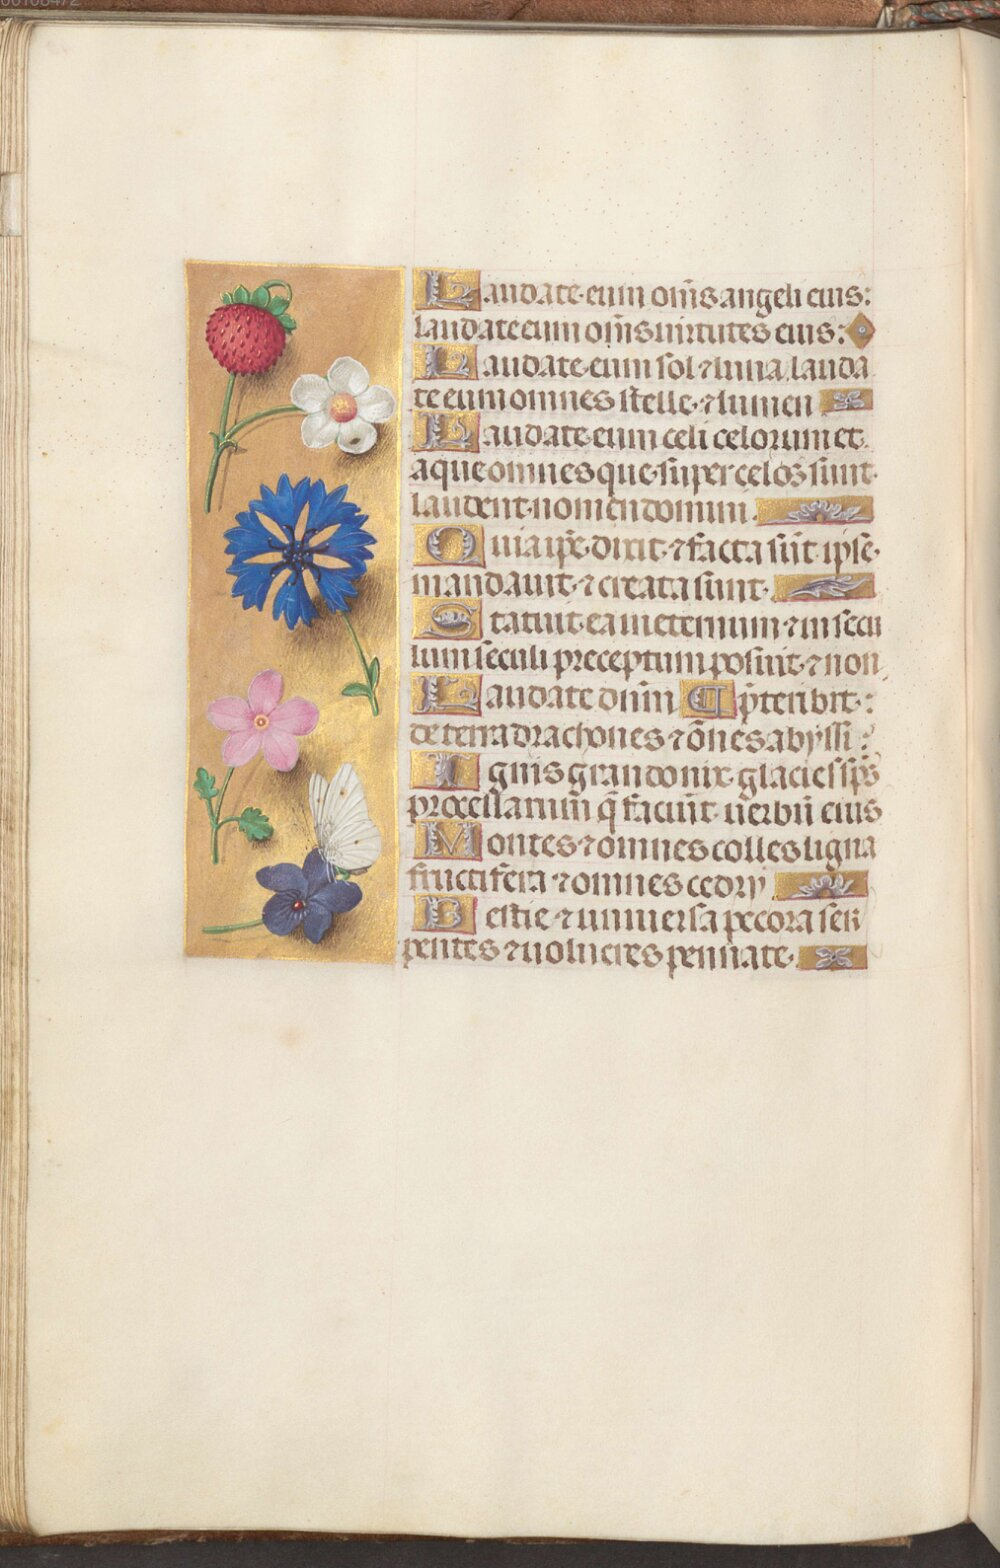 00108472
Laudate eum om̄s angeli eius:
laudate eum om̄s uirtutes eius:
Laudate eum sol ⁊ luna lauda
te eum omnes stelle ⁊ lumen
Laudate eum celi celorum et
aque omnes que super celos sunt
laudent nomen domini
Quia ip̄e dixit ⁊ facta sūt ipse
mandauit ⁊ creata sunt
Statuit ea in eternum ⁊ in secu
lum seculi preceptum posuit ⁊ non
Laudate dn̄m p̄teribit:
de terra drachones ⁊ om̄es abyssi:
Ignis grando nix glacies sp̄s
procellarum q̄ faciūt uerbū eius
Montes ⁊ omnes colles ligna
fructifera ⁊ omnes cedry
Bestie ⁊ uniuersa pecora ser
pentes ⁊ uolucres pennate